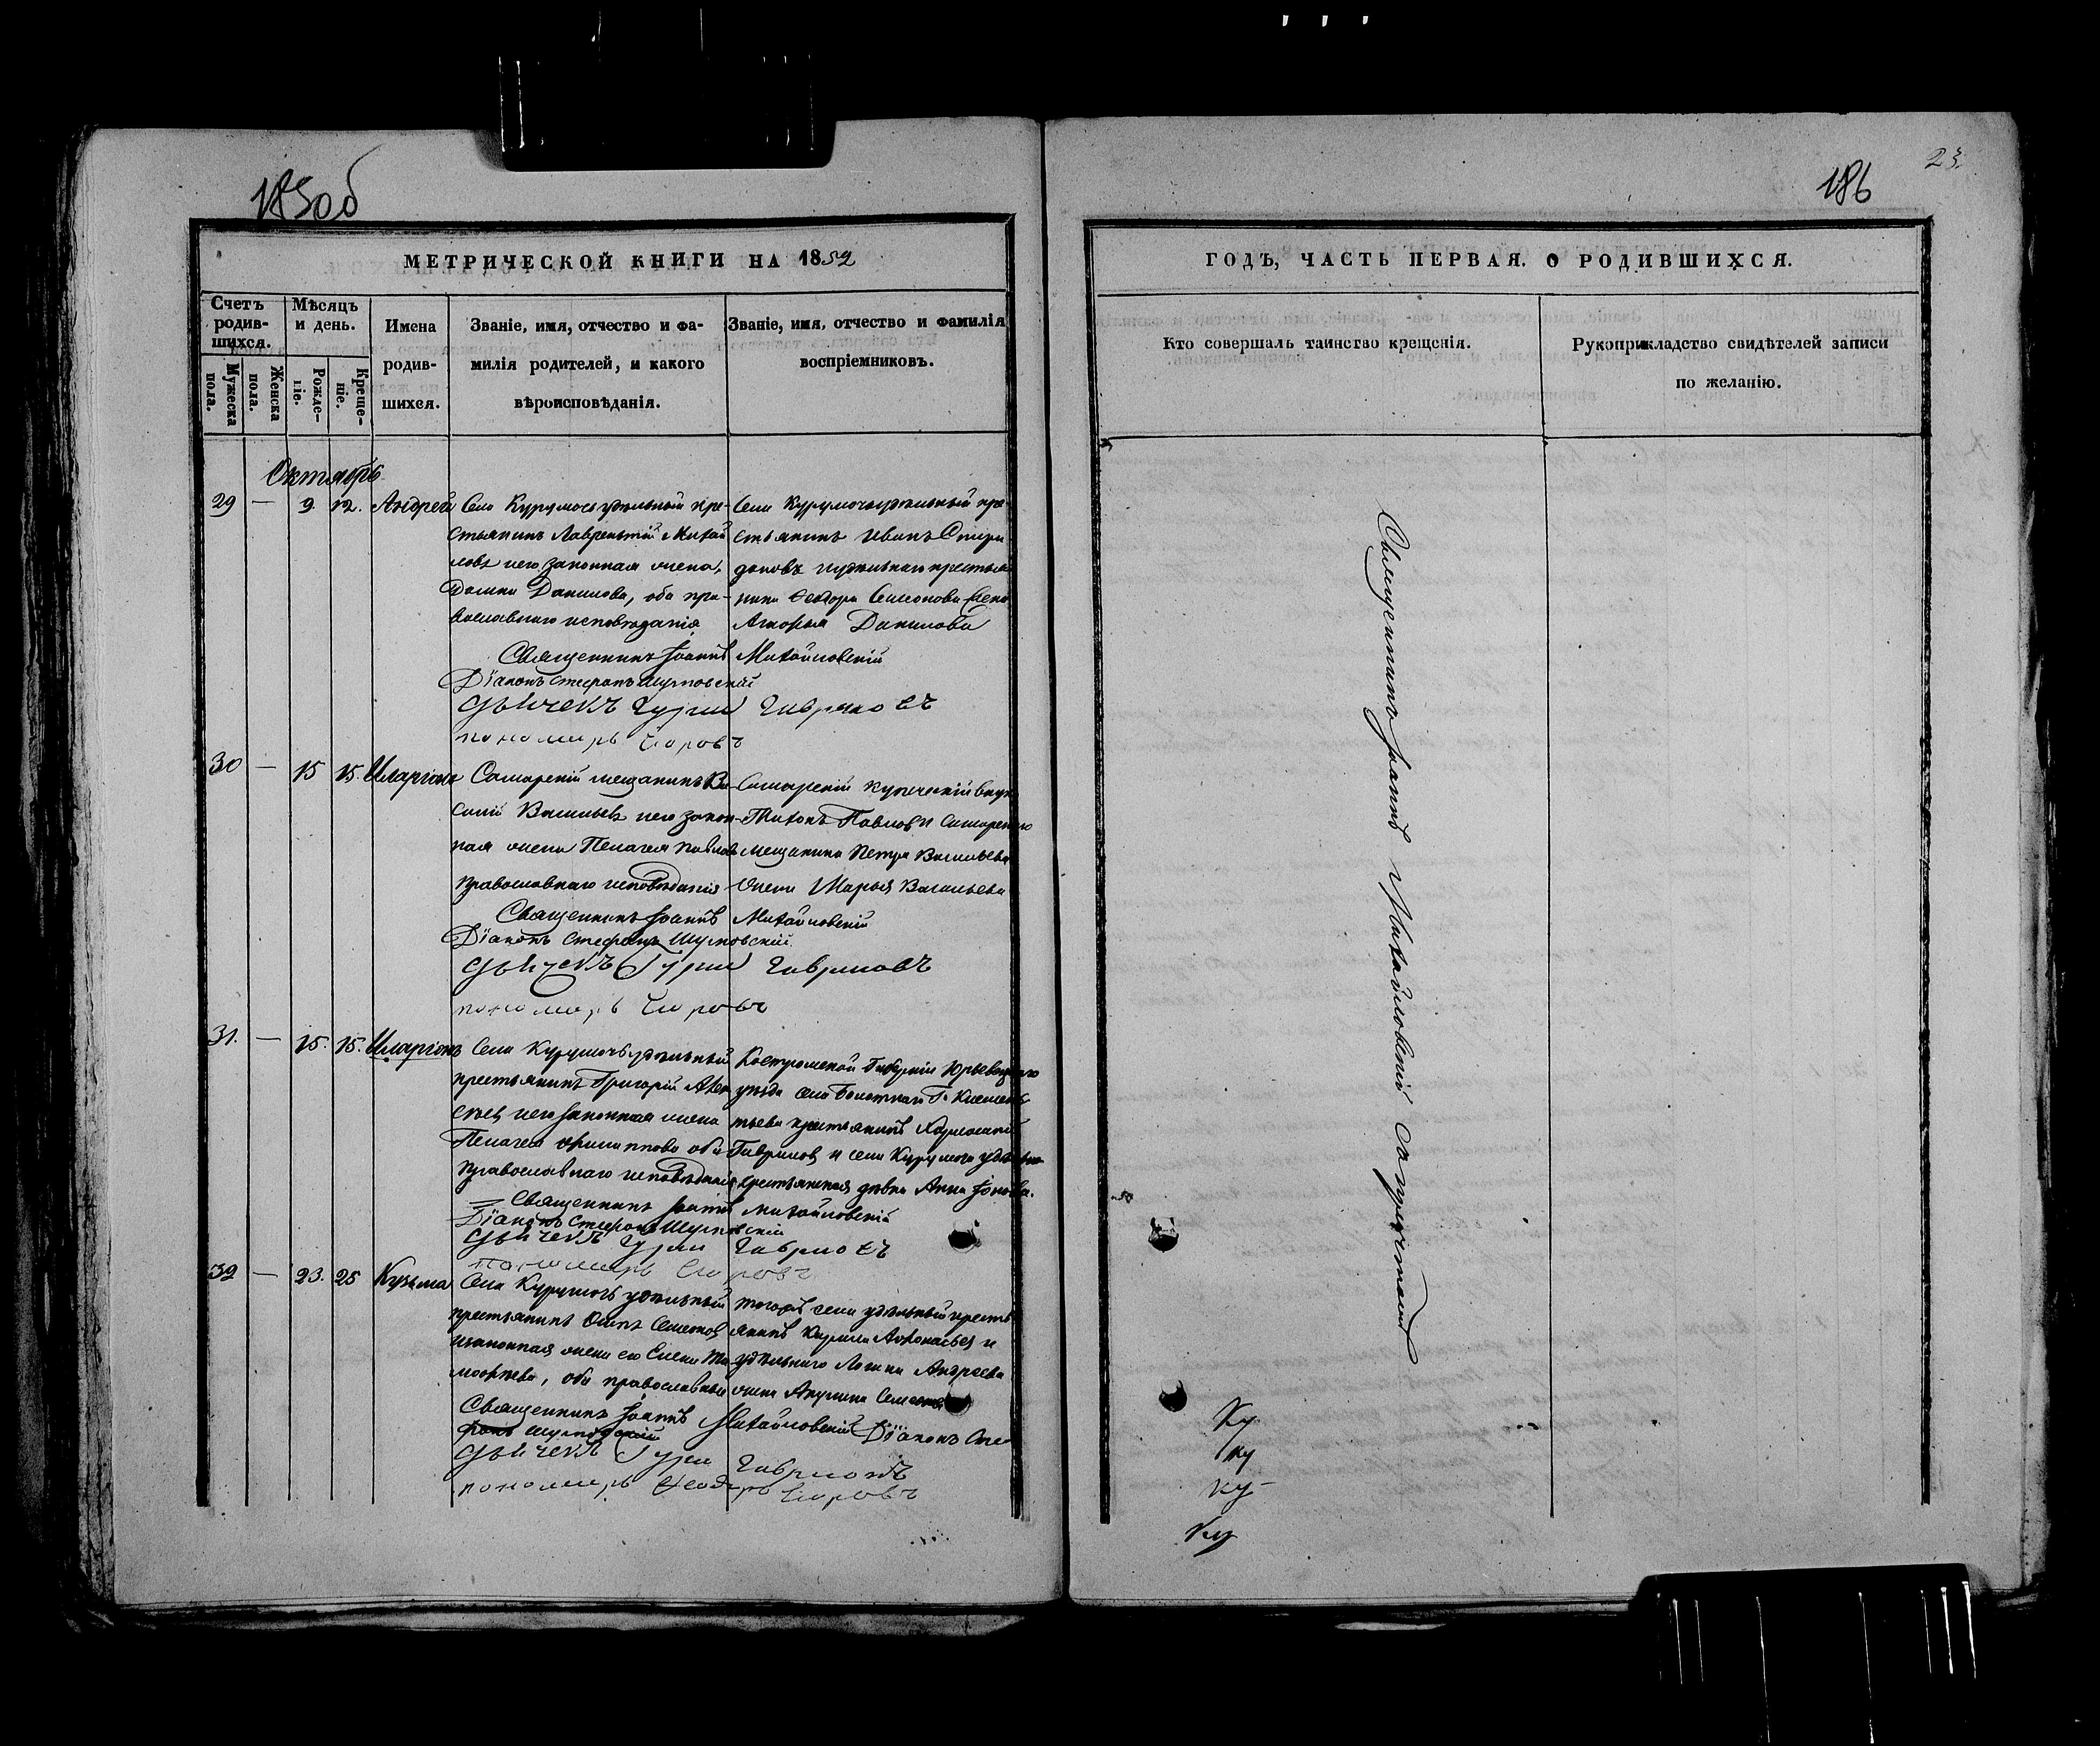 185 об
186
23.
МЕТРИЧЕСКОЙ КНИГИ НА 1852
ГОДЪ, ЧАСТЬ ПЕРВАЯ. О РОДИВШИХСЯ.
Счетъ родив-шихся.
Мужеска пола.
Женска пола.
Мѣсяцъ и день.
Рожде-ніе.
Креще-ніе.
Имена
родив-
шихся.
Званіе, имя, отчество и фа-
милія родителей, и какого
вѣроисповѣданія.
Званіе, имя, отчество и фамилія
воспріемниковъ.
Кто совершалъ таинство крещенія.
Рукоприкладство свидѣтелей записи
по желанію.
Октябрь
29 — 9. 12. Андрей
Села Курумоча удѣльный кре-
стьянинъ Лаврентій Михай
ловъ и его законная жена,
Домна Данилова, оба пра-
вославнаго исповѣданія
Села Курумоча удѣльный кре
стьянинъ Иванъ Спири
доновъ и удѣльнаго крестья
нина Ѳедора Симонова жена
Данилова
Священникъ Іоаннъ Михайловскій
Діаконъ Стефанъ Шумовскій
Дьячекъ Гурій Гавриловъ
пономарь Егоровъ
30 — 15 15. Иларіонъ
Самарскій мещанинъ Ва
силій Васильевъ и его закон-
ная жена Пелагея Павлова
Православнаго исповѣданія
Самарскій купеческій внукъ
Тихонъ Павловъ и Самарскаго
мещанина Петра Васильева
жена Марья Васильева
Священникъ Іоаннъ Михайловскій
Діаконъ Стефанъ Шумовскій
Дьячекъ Гурій Гавриловъ
пономарь Егоровъ
31. — 15. 15. Иларіонъ
Села Курумочь удѣльный
крестьянинъ Григорій Алек
сѣевъ и его законная жена
Пелагея Филиппова оба
Православнаго исповѣданія
Костромской Губерніи Юрьевецкаго
уѣзда села
крестьянинъ
Гавриловъ и села Курумоча удѣльная
крестьянская дѣвка Анна
Священникъ Іоаннъ Михайловскій
Діаконъ Стефанъ Шумовскій
Дьячекъ Гурій Гавриловъ
пономарь Егоровъ
32 — 23. 25 Кузьма
Села Курумочь удѣльный
крестьянинъ Осипъ Семеновъ
и законная жена его Елена Ти
моѳѣева, оба православные
тогожъ села удѣльный кресть
янинъ Кирила Аѳонасьевъ и
удѣльнаго Андреева
жена Акулина Семенова
Священникъ Іоаннъ Михайловскій Діаконъ Сте
фанъ Шумовскій
Дьячекъ Гурій Гавриловъ
пономарь Ѳеодоръ Егоровъ
Священникъ Іоаннъ Михайловскій съ причтомъ
Ку
Ку
Ку
Ку